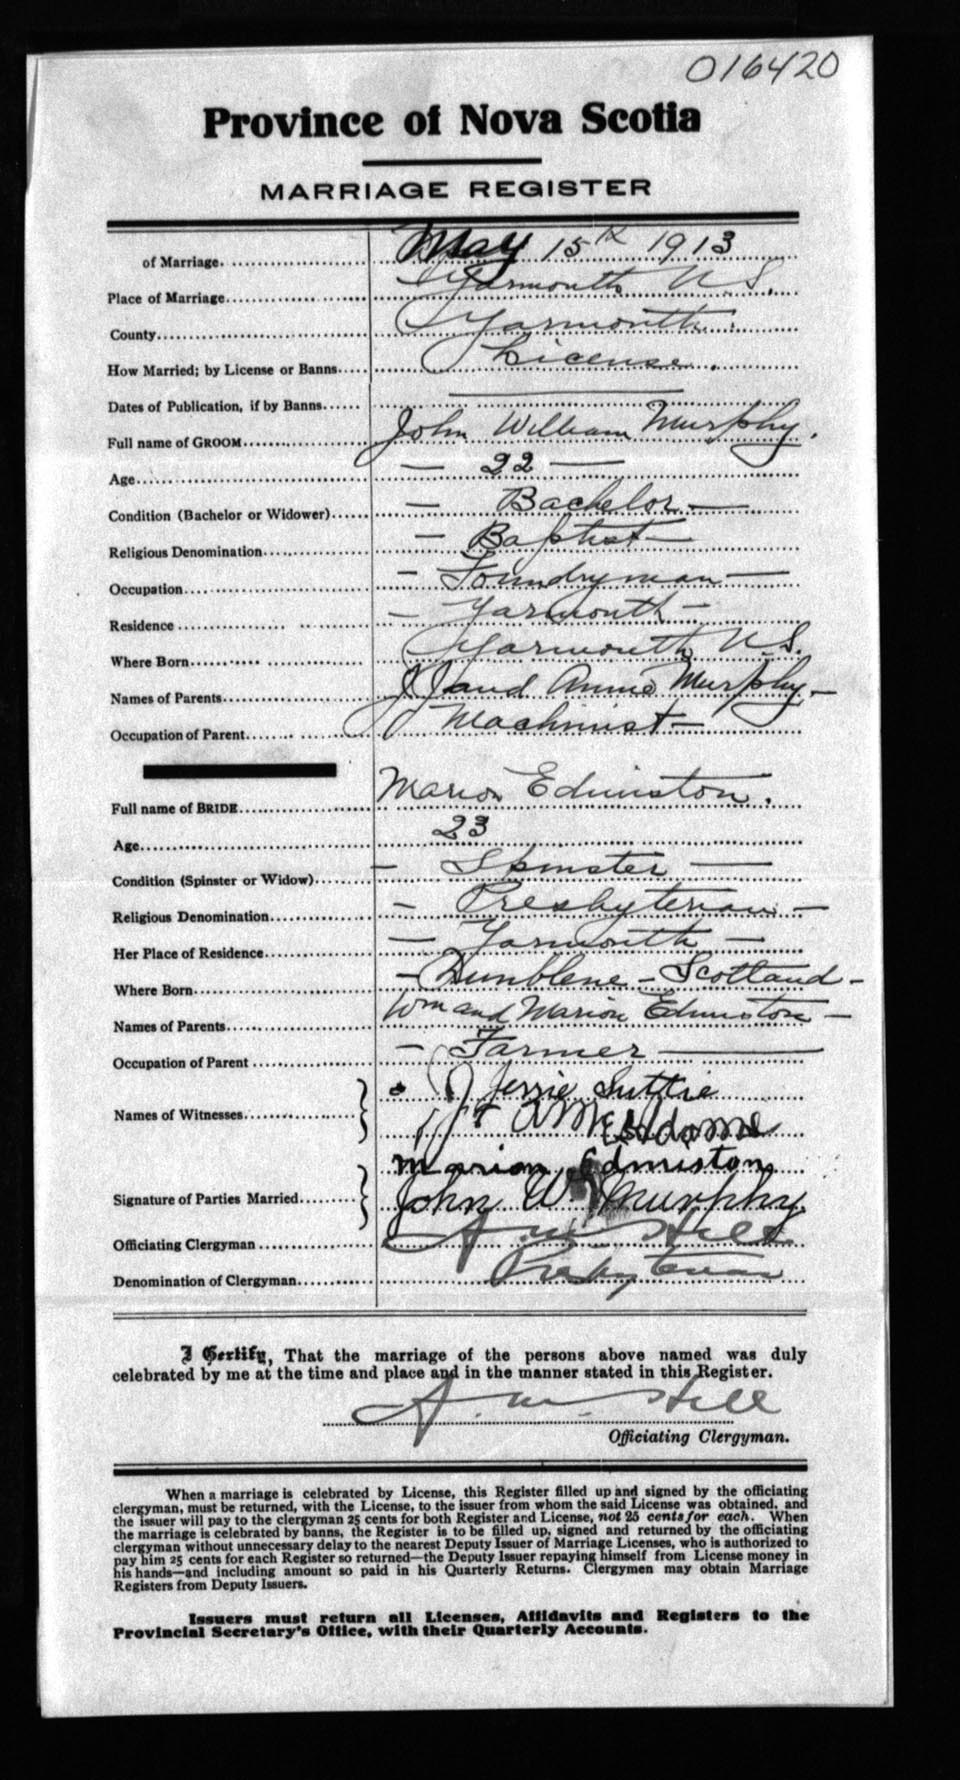 016420
Province of Nova Scotia
MARRIAGE REGISTER
of Marriage. May 15th 1913
Place of Marriage Yarmouth N.S.
County Yarmouth.
How Married; by License or Banns License.
Dates of Publication, if by Banns
Full name of GROOM John William Murphy.
Age — 22 —
Condition (Bachelor or Widower) — Bachelor —
Religious Denomination — Baptist —
Occupation — Foundryman —
Residence — Yarmouth —
Where Born Yarmouth N.S.
Names of Parents J J and Annie Murphy —
Occupation of Parent Machinist —
Full name of BRIDE Marion Edmiston.
Age 23
Condition (Spinster or Widow) — Spinster —
Religious Denomination — Presbyterian —
Her Place of Residence — Yarmouth —
Where Born — Dunblene — Scotland —
Names of Parents Wm and Marion Edmiston —
Occupation of Parent — Farmer —
Jessie Suttie
Names of Witnesses
Marion Edmiston
Signature of Parties Married John W Murphy.
Officiating Clergyman A. M. Hill
Denomination of Clergyman Presbyterian
I Certify, That the marriage of the persons above named was duly
celebrated by me at the time and place and in the manner stated in this Register.
A. M. Hill
Officiating Clergyman.
When a marriage is celebrated by License, this Register filled up and signed by the officiating
clergyman, must be returned, with the License, to the issuer from whom the said License was obtained, and
the issuer will pay to the clergyman 25 cents for both Register and License, not 25 cents for each. When
the marriage is celebrated by banns, the Register is to be filled up, signed and returned by the officiating
clergyman without unnecessary delay to the nearest Deputy Issuer of Marriage Licenses, who is authorized to
pay him 25 cents for each Register so returned—the Deputy Issuer repaying himself from License money in
his hands—and including amount so paid in his Quarterly Returns. Clergymen may obtain Marriage
Registers from Deputy Issuers.
Issuers must return all Licenses, Affidavits and Registers to the
Provincial Secretary's Office, with their Quarterly Accounts.